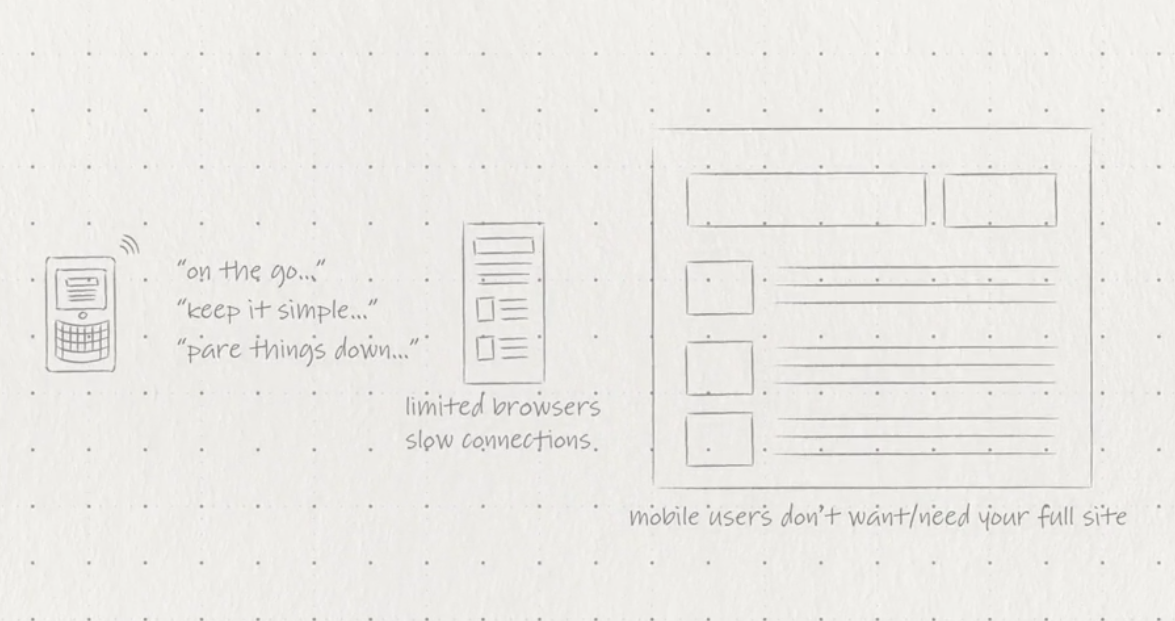 “on the go...”
“keep it simple...”
“pare things down...”
limited browsers
slow connections.
mobile users don’t want/need your full site